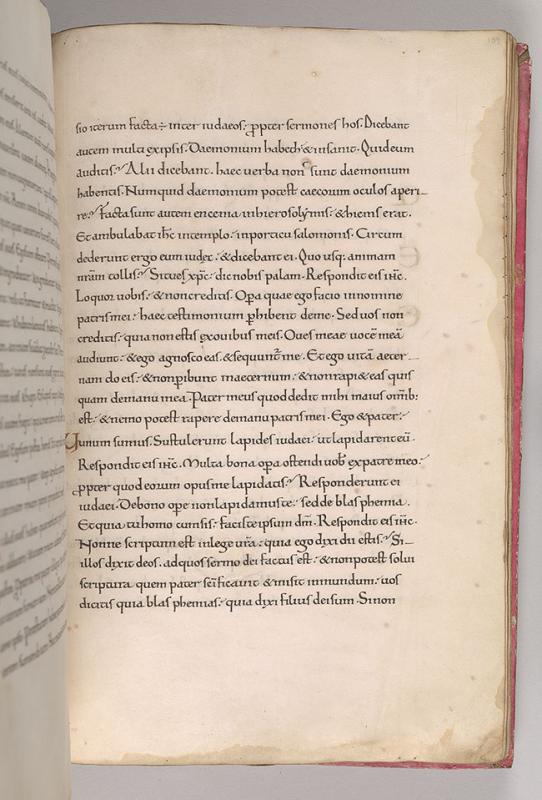 sio iterum facta ÷ inter iudaeos. ꝓpter sermones hos. Dicebant
autem multi exipsis. Daemonium habet & insanit. Quideum
auditis. Alii dicebant. haec verba non sunt daemonium
habentis. Numquid daemonium potest caecorum oculos aperi
re. Facta sunt autem encenia inhierosolymis. & hiems erat.
Et ambulabat ihc intemplo. inporticu salomonis. Circum
dederunt ergo eum iudei. & dicebant ei. Quo usq; animam
nr̄am tollis. Situes xp̄c. dic nobis palam. Respondit eis ihc.
Loquor uobis. & noncreditis. Oꝑa quae ego facio innomine
patris mei. haec testimonium ꝑhibent deme. Sed uos non
creditis. quia non estis exouibus meis. Oues meae uocē meā
audiunt. & ego agnosco eas. & sequunt̄ me. Et ego uitā aeter
nam do eis. & nonꝑibunt inaeternum. & nonrapi& eas quis
quam demanu mea. Pater meus quod dedit mihi maius omīb;
est. & nemo potest rapere demanu patris mei. Ego & pater.
unum sumus. Sustulerunt lapides iudaei. ut lapidarent eū.
Respondit eis ihc. Multa bona oꝑa ostendi uob̄ expatre meo.
ꝓpter quod eorum opus me lapidatis. Responderunt ei
iudaei. Debono oꝑe nonlapidamus te. sed de blasphemia.
Et quia tu homo cumsis. facis teipsum dm̄. Respondit eis ihc.
Nonne scriptum est inlege ur̄a. quia ego dixi dii estis. Si
illos dixit deos. adquos sermo dei factus est. & nonpotest solui
scriptura. quem pater sc̄ificauit & misit inmundum. uos
dicitis quia blasphemas. quia dixi filius dei sum. Sinon